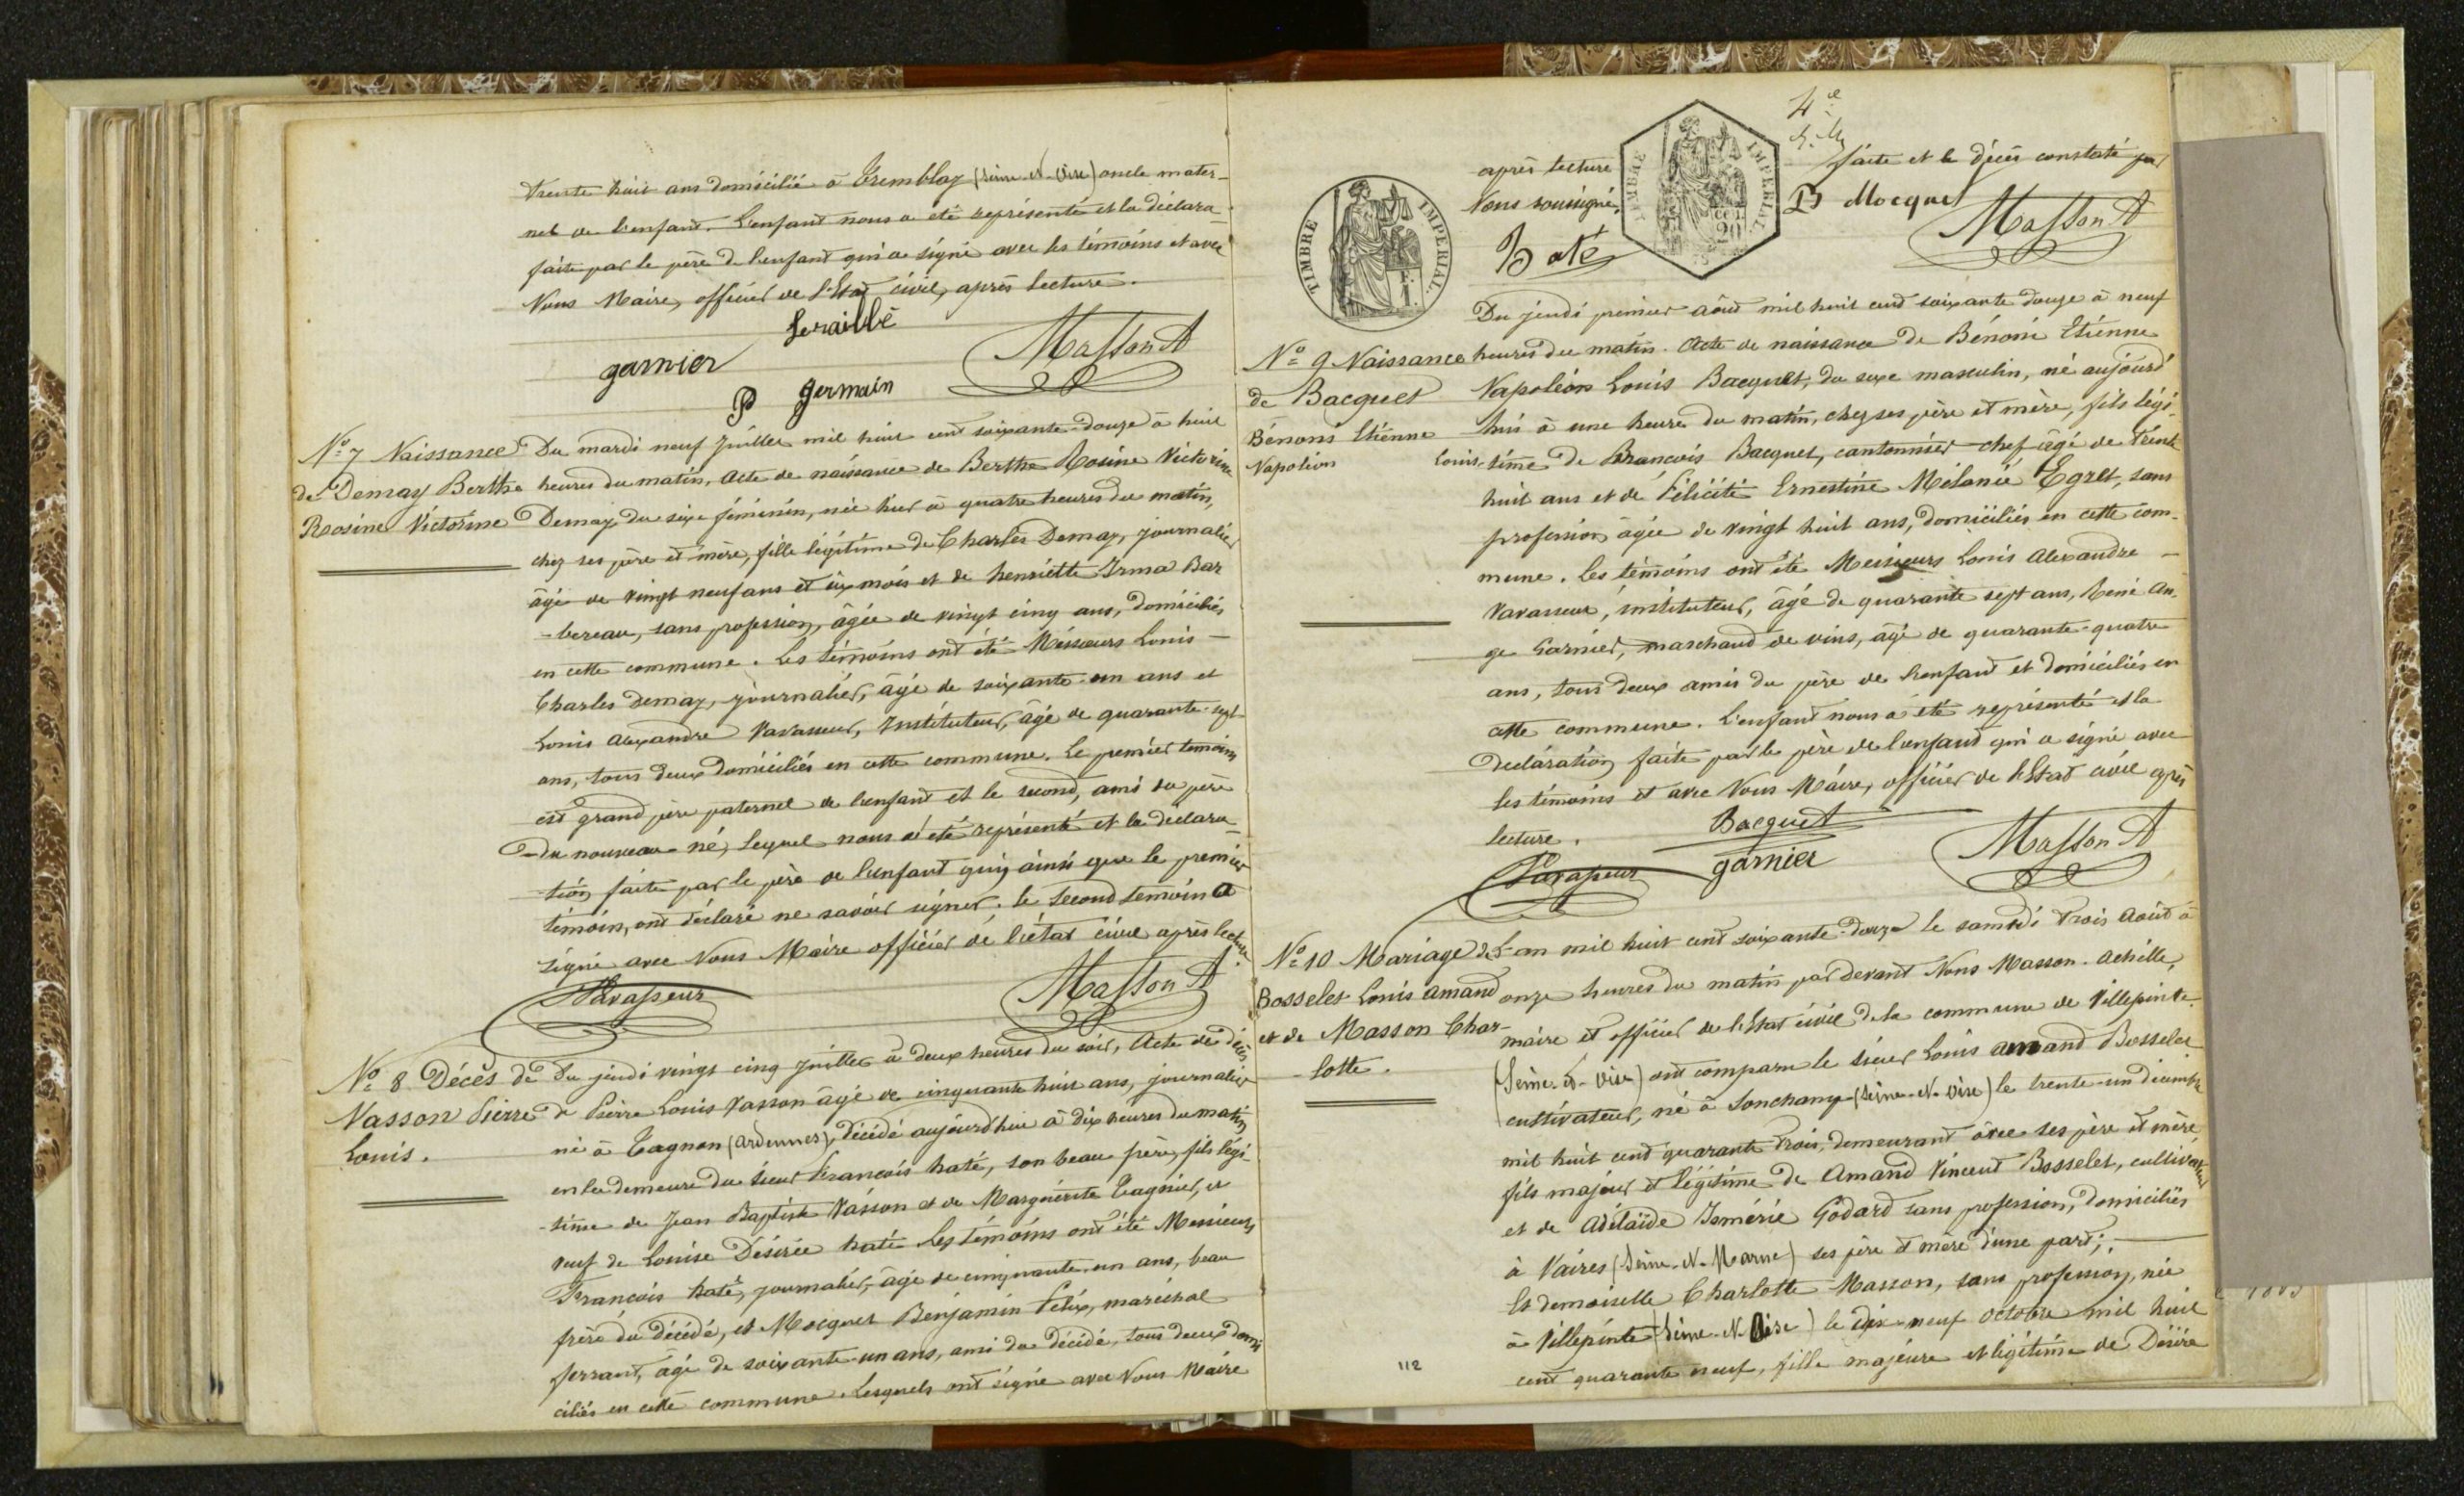 trente huit ans domicilié à Tremblay (Seine-et-Oise) oncle mater-
nel de l'enfant. L'enfant nous a été représenté et la déclara
faite par le père de l'enfant qui a signé avec les témoins et avec
Nous Maire, officier de l'Etat civil, après lecture.
garnier
P germain
Masson A
No 7 Naissance
de Demay Berthe
Rosine Victorine
Du mardi neuf Juillet mil huit cent soixante-douze à huit
heures du matin, Acte de naissance de Berthe Rosine Victorine
Demay du sexe féminin, née hier à quatre heures du matin,
chez ses père et mère, fille légitime de Charles Demay, journalier
âgé de vingt neuf ans et six mois et de henriette Irma Bar
-bereau, sans profession, âgée de vingt cinq ans, domiciliés
en cette commune. Les témoins ont été Messieurs Louis
Charles Demay, journalier, âgé de soixante-un ans et
Louis Alexandre Vavasseur, Instituteur, âgé de quarante-sept
ans, tous deux domiciliés en cette commune. Le premier témoin
est grand père paternel de l'enfant et le second, ami du père
du nouveau-né, lequel nous a été représenté et la déclara-
-tion faite par le père de l'enfant qui, ainsi que le premier
témoin, ont déclaré ne savoir signer. le second témoin a
signé avec Nous Maire officier de l'état civil après lecture.
Vavasseur
Masson A
No 8 Décès de
Vasson Pierre
Louis.
Du jeudi vingt cinq juillet à deux heures du soir, Acte de décès
de Pierre Louis Vasson âgé de cinquante huit ans, journalier
né à Tagnon (Ardennes), décédé aujourd'hui à dix heures du matin
en la demeure du sieur François haté, son beau frère, fils légi-
-time de Jean Baptiste Vasson et de Marguerite Tagnier, et
veuf de Louise Désirée haté. Les témoins ont été Messieurs
François haté, journalier, âgé de cinquante-un ans, beau
frère du décédé, et Mocquet Benjamin Félix, maréchal
ferrant, âgé de soixante-un ans, ami du décédé, tous deux domi
ciliés en cette commune. Lesquels ont signé avec Nous Maire
4e
après lecture faite et le décès constaté par
Nous soussigné.
TIMBRE IMPERIAL
TIMBRE IMPERIAL
haté
B Mocquet
Masson A
No 9 Naissance
de Bacquet
Bénoni Etienne
Napoléon Louis
Du jeudi premier août mil huit cent soixante douze à neuf
heures du matin. Acte de naissance de Bénoni Etienne
Napoléon Louis Bacquet, du sexe masculin, né aujourd'
hui à une heure du matin, chez ses père et mère, fils légi-
time de François Bacquet, cantonnier-chef âgé de trente
huit ans et de Félicité Ernestine Mélanie Egret, sans
profession, âgée de vingt huit ans, domiciliés en cette com-
mune. Les témoins ont été Messieurs Louis Alexandre
Vavasseur, instituteur, âgé de quarante sept ans, René An-
ge Garnier, marchand de vins, âgé de quarante-quatre
ans, tous deux amis du père de l'enfant et domiciliés en
cette commune. L'enfant nous a été représenté et la
déclaration faite par le père de l'enfant qui a signé avec
les témoins et avec Nous Maire, officier de l'Etat civil après
lecture.
Bacquet
Vavasseur
garnier
Masson A
No 10 Mariage de
Bosselet Louis Amand
et de Masson Char-
-lotte.
L'an mil huit cent soixante-douze le samedi trois Août à
onze heures du matin par devant Nous Masson Achille,
maire et officier de l'Etat civil de la commune de Villepinte
(Seine-et-Oise) ont comparu le sieur Louis Amand Bosselet
cultivateur, né à Sonchamp (Seine-et-Oise) le trente-un décembre
mil huit cent quarante trois, demeurant avec ses père et mère
fils majeur et légitime de Amand Vincent Bosselet, cultivateur
et de Adélaïde Ismérie Godard sans profession, domiciliés
à Vaires (Seine-et-Marne) ses père et mère d'une part;
Et demoiselle Charlotte Masson, sans profession, née
à Villepinte (Seine-et-Oise) le dix-neuf octobre mil huit
cent quarante neuf, fille majeure et légitime de Désiré
112